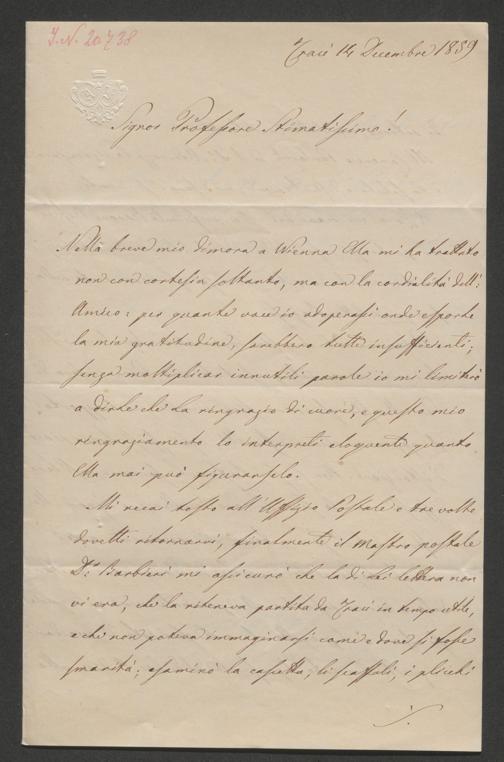 I. N. 20.738
Traù 14 Decembre 1859
Signor Professore Stimatissimo!
Nella breve mio dimora a Wienna Ella mi ha trattato
non con cortesia soltanto, ma con la cordialità dell'
Amico: per quante voci io adoperassi onde esporle
la mia gratitudine, sarebbero tutte insufficienti;
senza moltiplicar innutili parole io mi limiterò
a dirle che La ringrazio di cuore, e questo mio
ringraziamento lo interpreti eloquente quanto
Ella mai può figurarselo.
Mi recai tosto all'Uffizio Postale e tre volte
dovetti ritornarvi, finalmente il Mastro postale
Dr. Barbieri mi assicurò che la di Lei lettera non
vi era, che la riteneva partita da Traù in tempo utile,
e che non poteva immaginarsi come e dove si fosse
smarita; esaminò la cassetta, li scaffali, i plichi
./.